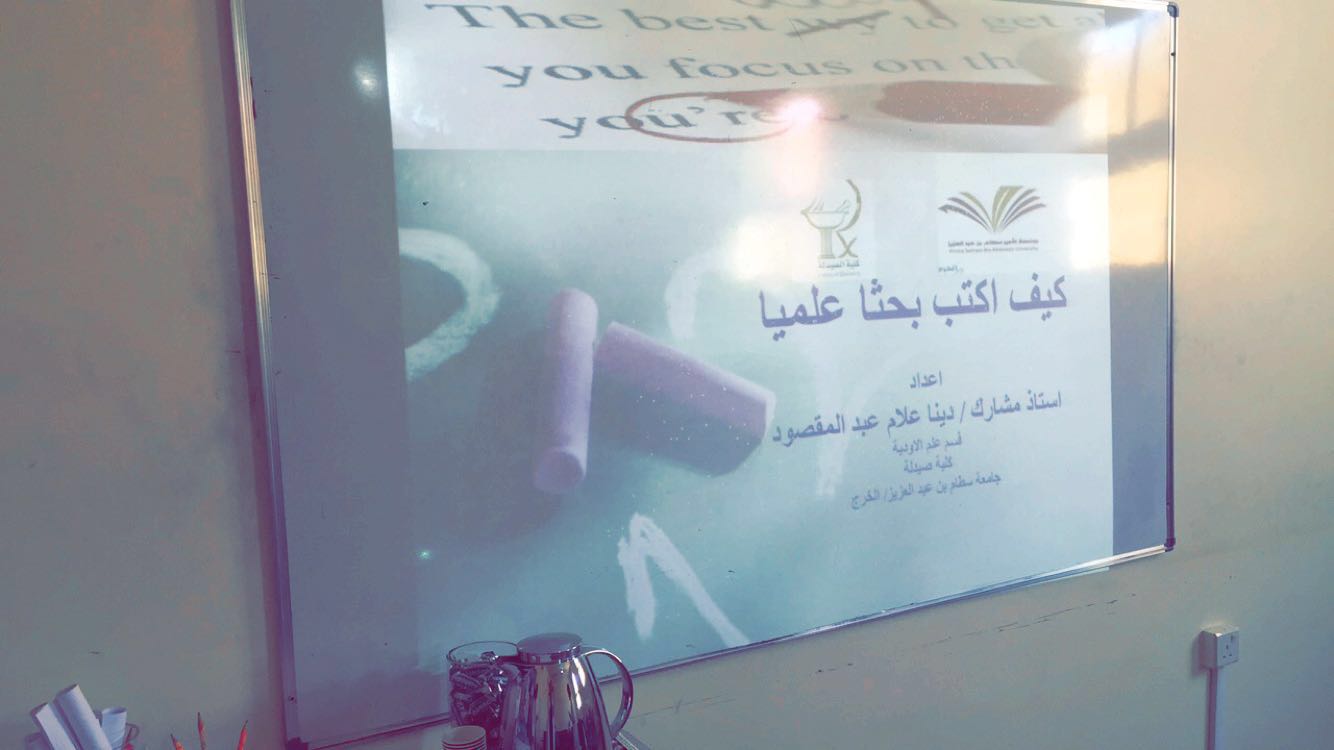 The best way to get a
you focus on th
you're
كلية الصيدلة
جامعة الأمير سطام بن عبد العزيز
Prince Sattam Bin Abdulaziz University
كيف اكتب بحثا علميا
اعداد
استاذ مشارك / دينا علام عبد المقصود
قسم علم الادوية
كلية صيدلة
جامعة سطام بن عبد العزيز/ الخرج